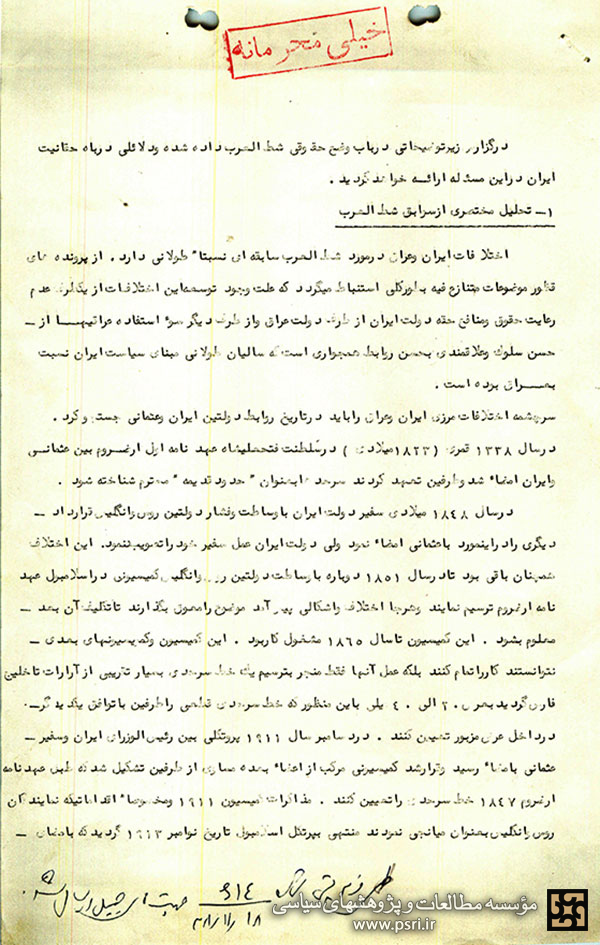 خیلی محرمانه
درگزارش زیرتوضیحاتی درباب وضع حقوقی شط العرب داده شده ودلائلی درباه حقانیت
ایران دراین مسئله ارائه خواهدگردید .
۱ـ تحلیل مختصری ازسوابق شط العرب
اختلافات ایران وعراق درمورد شط العرب سابقه ای نسبتاً طولانی دارد . ازپرونده های
قطور موضوعات متنازع فیه بطورکلی استنباط میگردد که علت وجود توسعه‌این اختلافات ازیکطرف عدم
رعایت حقوق ومنافع حقه دولت ایران از طرف دولت عراق واز طرف دیگر سوء استفاده عراقیها از ـ
حسن سلوک وعلاقمندی بحسن روابط همجواری است که سالیان طولانی مبنای سیاست ایران نسبت
بعراق بوده است .
سرچشمه اختلافات مرزی ایران وعراق راباید درتاریخ روابط دولتین ایران وعثمانی جستجو کرد .
درسال ۱۳۳۸ قمری (۱۸۲۳میلادی ) درسلطنت فتحعلیشاه عهد نامه اول ارضروم بین عثمانی
وایران امضاء شد وطرفین تعهد کردند سرحد بعنوان " حدود قدیمه " محترم شناخته شود .
درسال ۱۸۴۸ میلادی سفیر دولت ایران باوساطت وفشار دولتین روس وانگلیس قرارداد ـ
دیگری رادراینمورد باعثمانی امضاء نمود ولی دولت ایران عمل سفیر خود راتصویب‌ننمود. این اختلاف
همچنان باقی بود تادرسال ۱۸۵۱ دوباره باوساطت دولتین روس وانگلیس کمیسیونی دراسلامبول عهد
نامه ارضروم ترسیم نمایند وهرجا اختلاف واشکالی پیش آمد موضوع رامعوق بگذارند تاتکلیف آن بعد ـ
معلوم بشود . این کمیسیون تاسال ۱۸۶۵ مشغول کاربود . این کمیسیون وکمیسیونهای بعدی ـ
نتوانستند کارراتمام کنند بلکه عمل آنها فقط منجر بترسیم یک خط سرحدی بسیار تقریبی از آرارات تاخلیج
فارس گردید بعرض ۲۰ الی ۴۰ میل باین منظور که خط سرحدی قطعی راطرفین باتوافق یکدیگر
درداخل عرض مزبور تعیین کنند . در دسامبر سال ۱۹۱۱ پروتکلی بین رئیس الوزرای ایران وسفیر ـ
عثمانی بامضاء رسید وقرارشد کمیسیونی مرکب ازاعضاء بعده مساوی از طرفین تشکیل شد که طبق عهدنامه
ارضروم ۱۸۴۷ خط سرحدی راتعیین کنند . مذاکرات کمیسیون ۱۹۱۱ ومخصوصاً اقداماتیکه نمایندگان
روس وانگلیس بعنوان میانجی نمودند منتهی بپرتکل اسلامبول تاریخ نوامبر ۱۹۱۳ گردید که بامضای ـ
۶۱۴
۴۸/۱/۱۸
مؤسسه مطالعات و پژوهشهای سیاسی
www.psri.ir